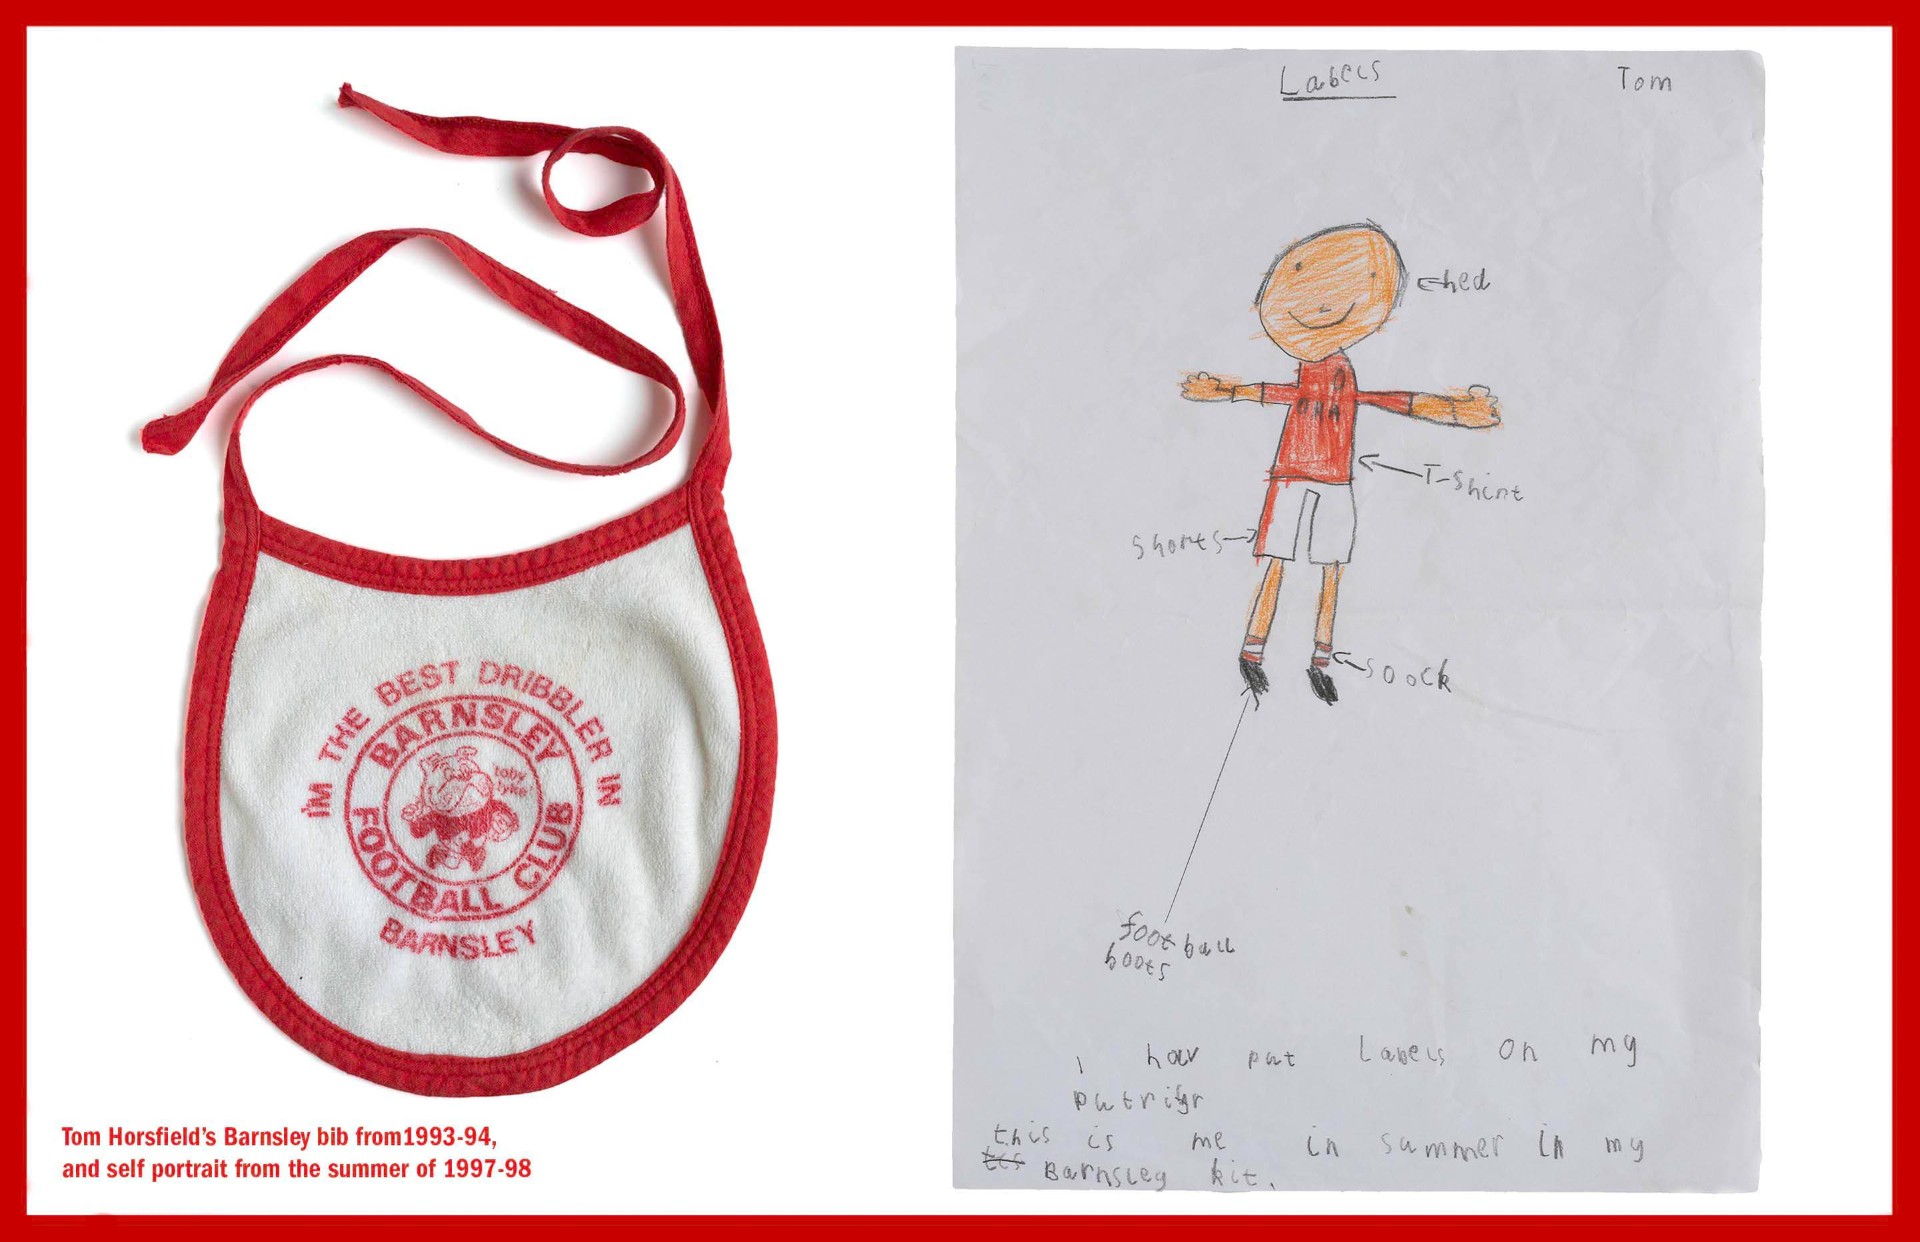 I'M THE BEST DRIBBLER IN
BARNSLEY
FOOTBALL CLUB
toby
tyke
BARNSLEY
Tom Horsfield's Barnsley bib from1993-94,
and self portrait from the summer of 1997-98
Labels
Tom
hed
T-Shirt
shorts
soock
foot ball
boots
i hav put Labels on my
this is me in summer in my
Barnsley kit.